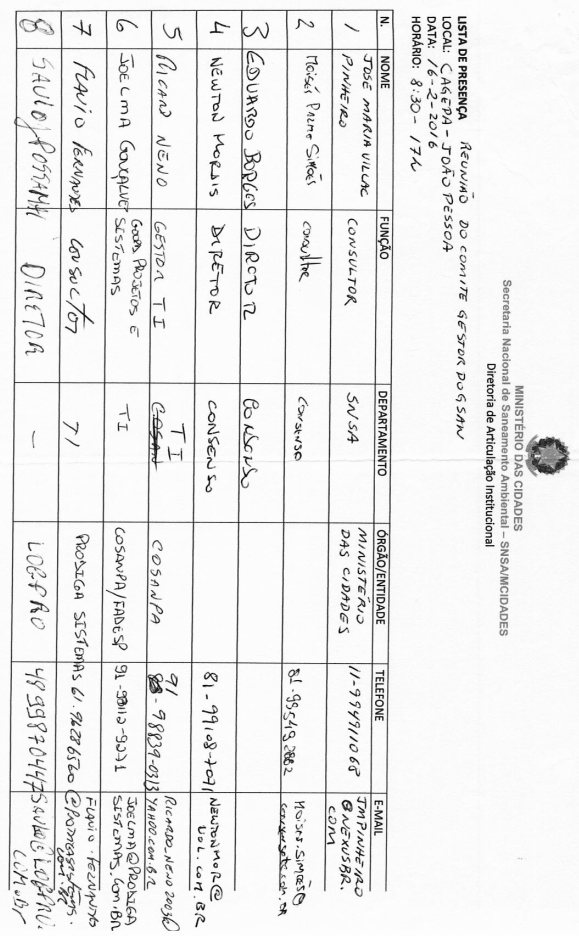 MINISTÉRIO DAS CIDADES
Secretaria Nacional de Saneamento Ambiental – SNSA/MCIDADES
Diretoria de Articulação Institucional
LISTA DE PRESENÇA REUNIÃO DO COMITE GESTOR DO GSAN
LOCAL: CAGEPA - JOÃO PESSOA
DATA: 16-2-2016
HORÁRIO: 8:30 - 17h
N. NOME FUNÇÃO DEPARTAMENTO ÓRGÃO/ENTIDADE TELEFONE E-MAIL
1 JOSE MARIA VILLAC PINHEIRO CONSULTOR SNSA MINISTÉRIO DAS CIDADES 11-994911068 JMPINHEIRO@NEXUSBR.COM
2 Moisés Simões consultor consenso 81.99549.2882 Moises.simoes@
3 EDUARDO BORGES DIRETOR CONSENSO
4 NEWTON MORAIS DIRETOR CONSENSO 81-99108-7071 NEWTONMOR@UOL.COM.BR
5 RICARDO NENO GESTOR TI TI COSANPA 91-98839-0313 RICARDO_NENO2003@YAHOO.COM.BR
6 JOELMA GONÇALVES PROJETOS E SISTEMAS TI COSANPA/FADESP 91-98112-9271 JOELMA@PRODIGASISTEMAS.COM.BR
7 FLAVIO FERNANDES CONSULTOR TI PRODIGA SISTEMAS 61.96286560 FLAVIO.FERNANDES@PRODIGASISTEMAS.COM.BR
8 SAULO DIRETOR — LOGPRO 48 99870447